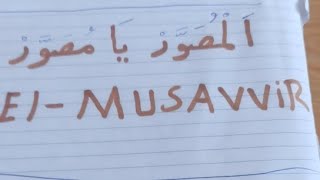 اَلْمُصَوِّرْ يَا مُصَوِّرْ
El-MUSAVViR